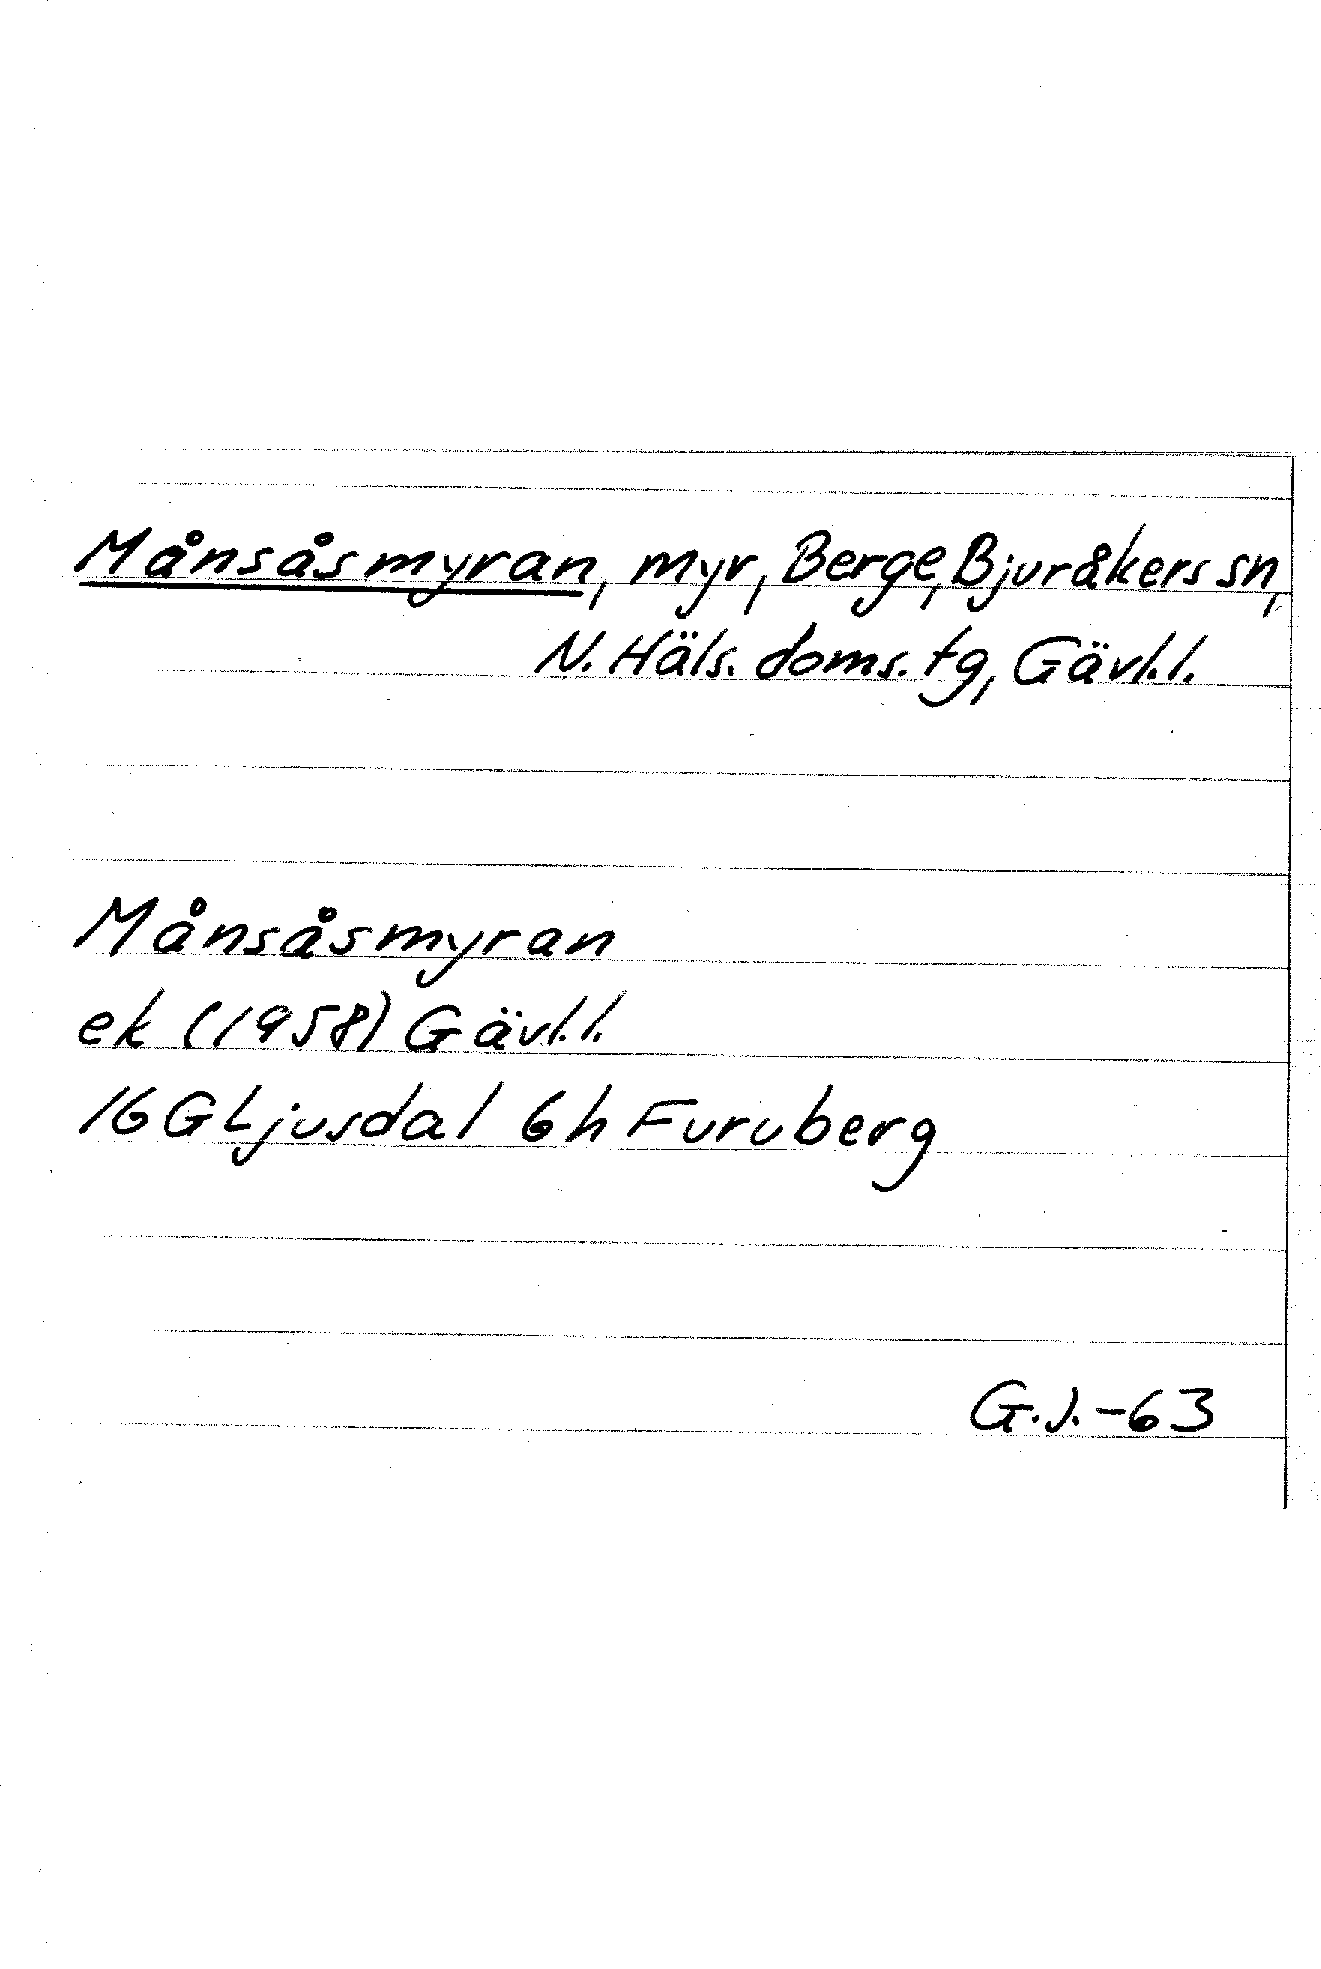 Månsåsmyran, myr, Berge, Bjuråkers sn,
N. Häls. doms. tg, Gävl.l.
Månsåsmyran
ek (1958) Gävl.l.
16 G Ljusdal 6h Furuberg
G.J. -63